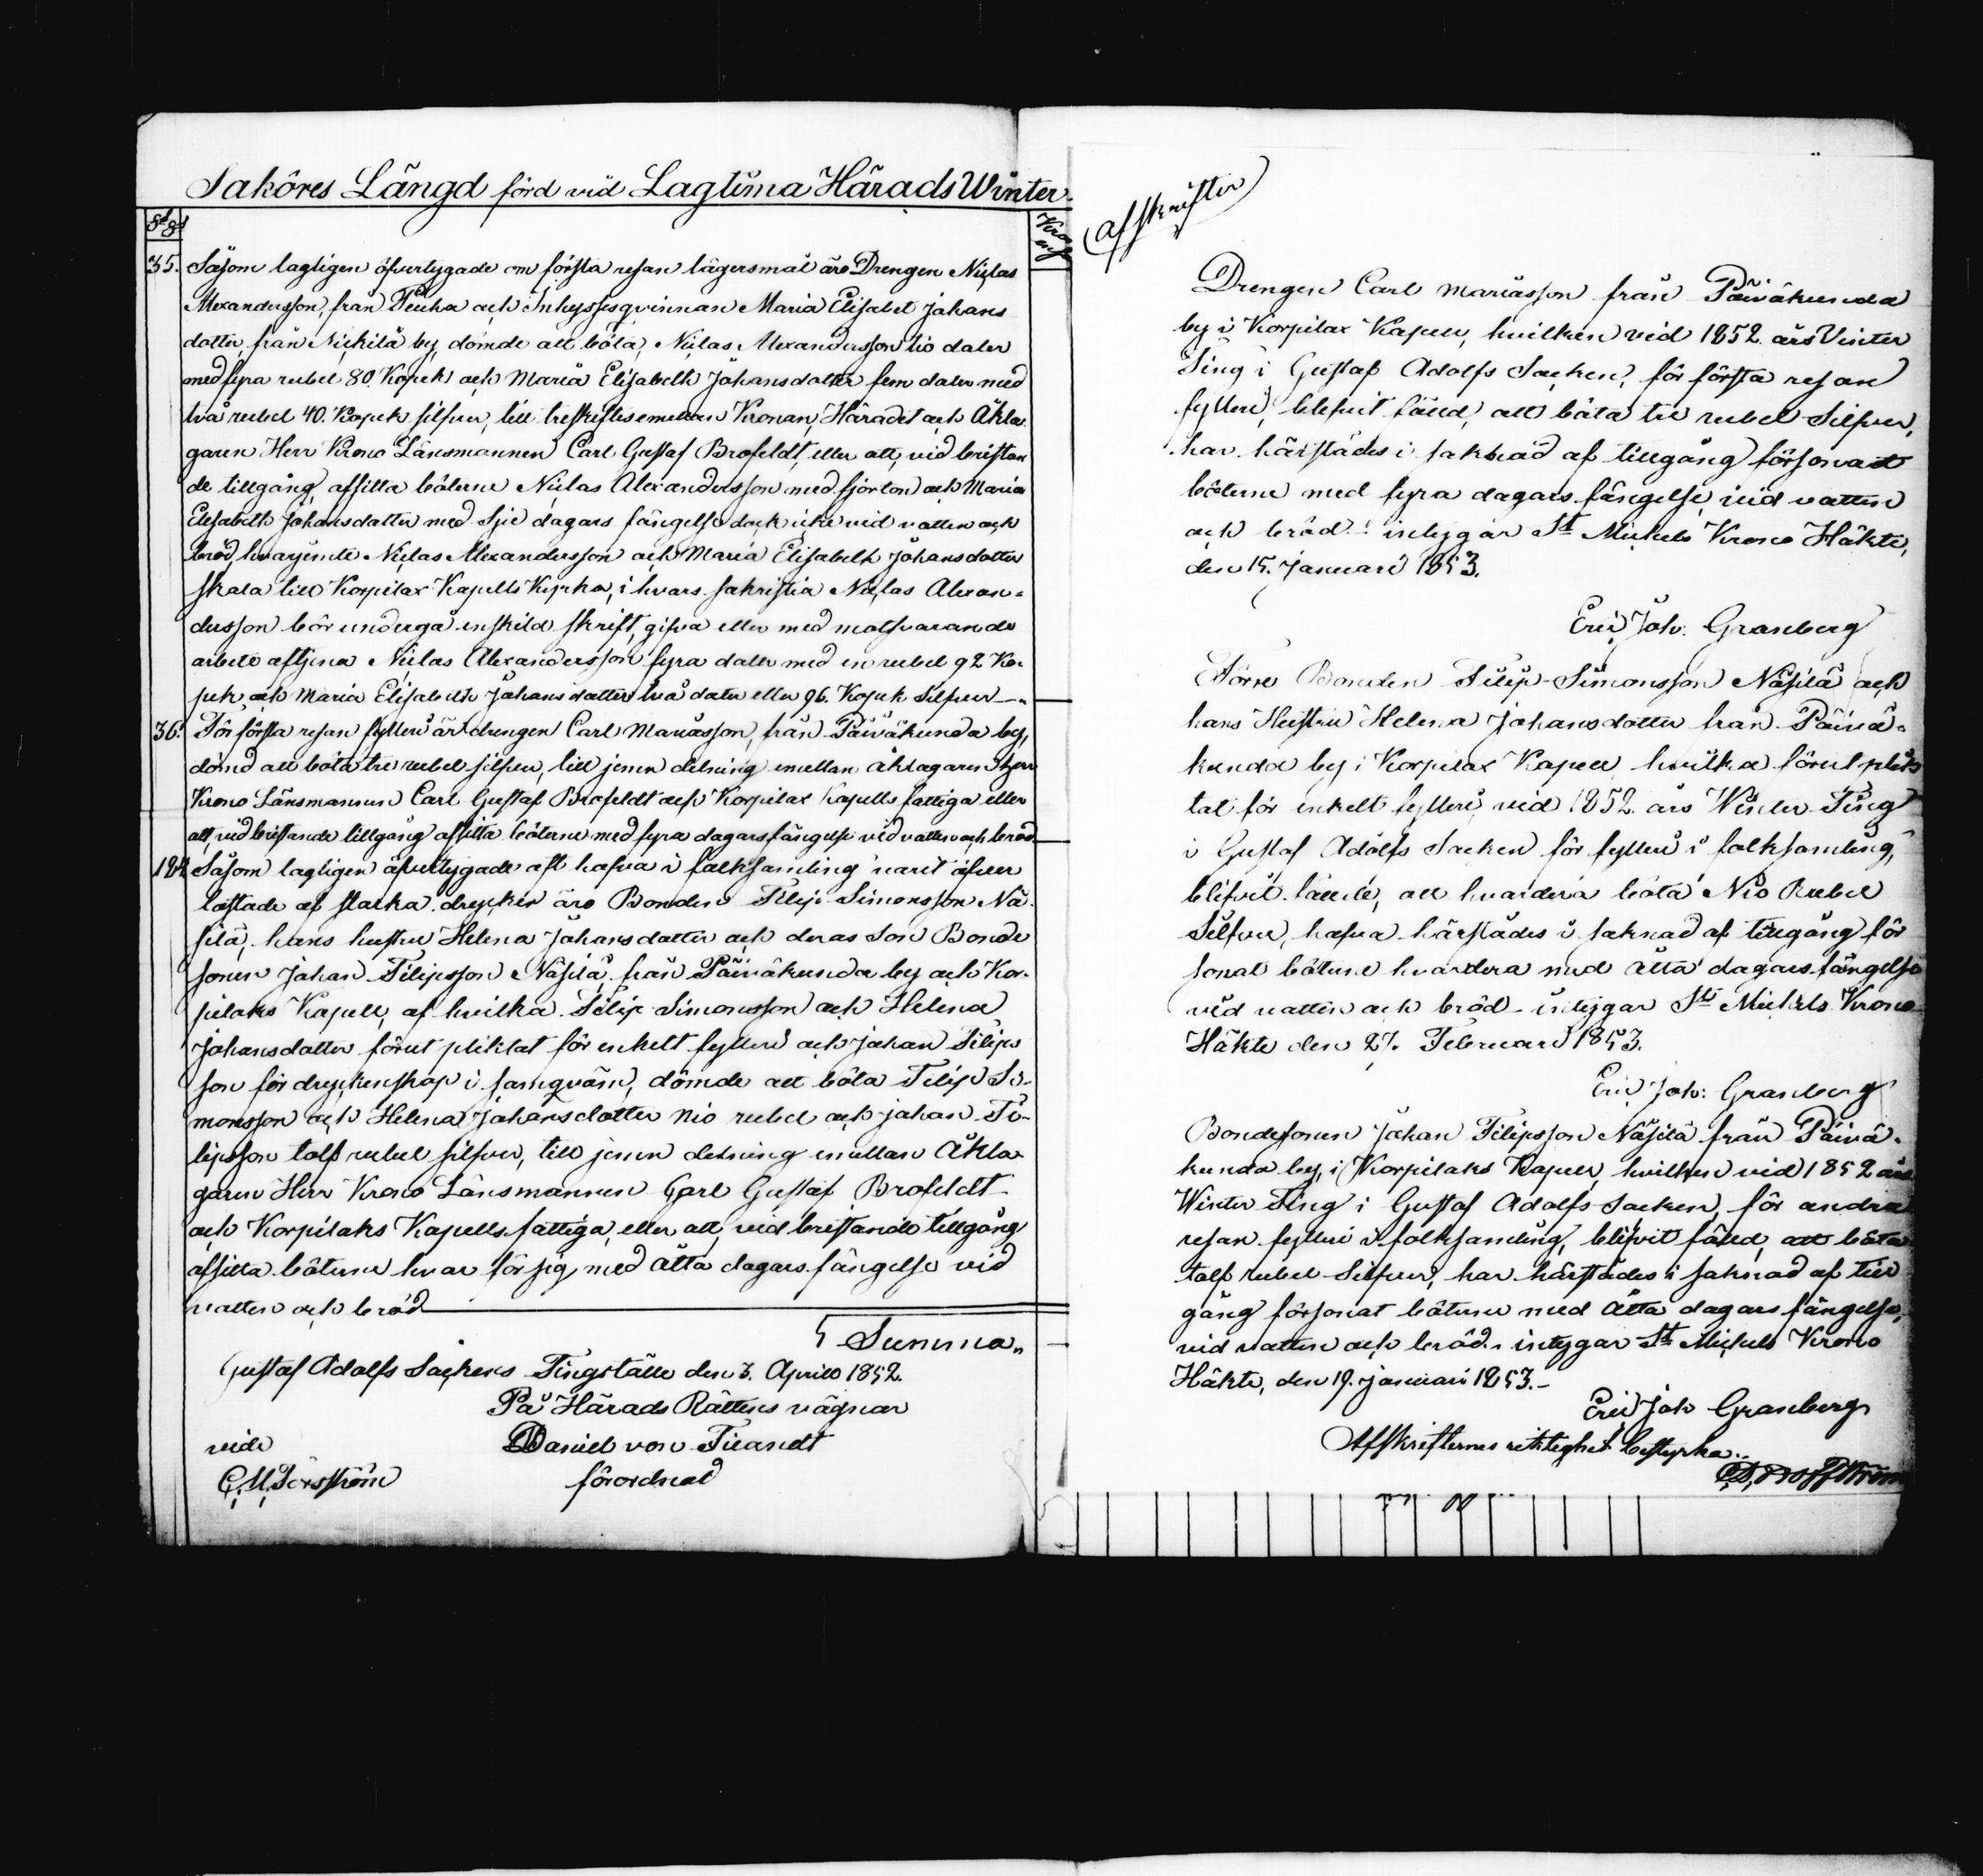 Saköres Längd förd vid Lagtima Härads Winter-
35. Såsom lagligen öfvertygade om första resan lägersmål äro Drengen Niclas
Alexandersson, från och Inhysesqvinnan Maria Elisabet Johans
dotter från Nickilä by, dömde att böta, Niclas Alexandersson tio daler
med fyra rubel 80. Kopek och Maria Elisabeth Johansdotter fem daler med
två rubel 40. Kopek silfver, till treskiftes emellan Kronan, Häradet och Åkla
garen Herr Krono Länsmannen Carl Gustaf Brofeldt, eller att, vid bristan
de tillgång, afsitta böterne Niclas Alexandersson med fjorton och Maria
Elisabeth Johansdotter med Sju dagars fängelse dock icke vid vatten och
bröd, hvarjemte Niclas Alexandersson och Maria Elisabeth Johansdotter
skola till Korpilax Kapells Kyrka, i hvars sakristia Niclas Alexan=
dersson bör undergå enskild skrift, gifva eller med motsvarande
arbete aftjena Niclas Alexandersson fyra daler med en rubel 92 Ko-
pek, och Maria Elisabeth Johansdotter två daler eller 96. Kopek Silfver
36. För första resan fylleri är drengen Carl Mariasson, från Päiväkunda by,
dömd att böta tre rubel silfver, till jemn delning emellan åklagaren Herr
Krono Länsmannen Carl Gustaf Brofeldt och Korpilax Kapells fattiga eller
att, vid bristande tillgång afsitta böterne med fyra dagars fängelse vid vatten och bröd
184 Såsom lagligen öfvertygade att hafva i folksamling varit öfver
lastade af starka drycker äro Bonden Filip Simonsson Nä
silä, hans hustru Helena Johansdotter och deras Son Bonde
sonen Johan Filipsson Näsilä från Päiväkunda by och Kor-
pilaks Kapell, af hvilka Filip Simonsson och Helena
Johansdotter förut pliktat för enkelt fylleri och Johan Filips
son för dryckenskap i samqväm, dömde att böta Filip Si-
monsson och Helena Johansdotter nio rubel och Johan Fi-
lipsson tolf rubel silfver, till jemn delning emellan Åkla
garen Herr Krono Länsmannen Carl Gustaf Brofeldt
och Korpilaks Kapells fattiga, eller att, vid bristande tillgång
afsitta böterne hvar för sig, med åtta dagars fängelse vid
vatten och bröd
Summa
Gustaf Adolfs Sockens Tingställe den 3. April 1852.
På Härads Rättens vägnar
Daniel von Fieandt
förordnad
vide
(afskrifter)
Drengen Carl Mariasson från Päiväkunda
by i Korpilax Kapell, hvilken vid 1852 års Vinter
Ting i Gustaf Adolfs Socken, för första resan
fylleri, blefvit fälld, att böta tre rubel Silfver,
har härstädes i saknad af tillgång försonat
böterne med fyra dagars fängelse vid vatten
och bröd intygar St Michels Krono Häkte,
den 15. Januari 1853.
Eric Joh: Granberg
Förre Bonden Filip Simonsson Näsilä och
hans Hustru Helena Johansdotter från Päivä-
kunda by i Korpilax Kapell hvilka förut plik
tat för enkelt fylleri, vid 1852 års Winter Ting
i Gustaf Adolfs Socken för fylleri i folksamling,
blifvit fällde, att hvardera böta Nio Rubel
Silfver, hafva härstädes i saknad af tillgång för
sonat böterne hvardera med åtta dagars fängelse
vid vatten och bröd - intygar St Michels Krono
Häkte den 27. Februari 1853.
Eric Joh: Granberg
Bondesonen Johan Filipsson Näsilä från Päivä-
kunda by, i Korpilaks Kapell, hvilken vid 1852 års
Winter Ting i Gustaf Adolfs Socken, för andra
resan fylleri i folksamling, blifvit fälld, att böta
tolf rubel Silfver, har härstädes i saknad af till
gång försonat böterne med åtta dagars fängelse,
vid vatten och bröd, intygar St Michels Krono
Häkte, den 19. Januari 1853.-
Eric Joh Granberg
Afskrifternes riktighet bestyrka: